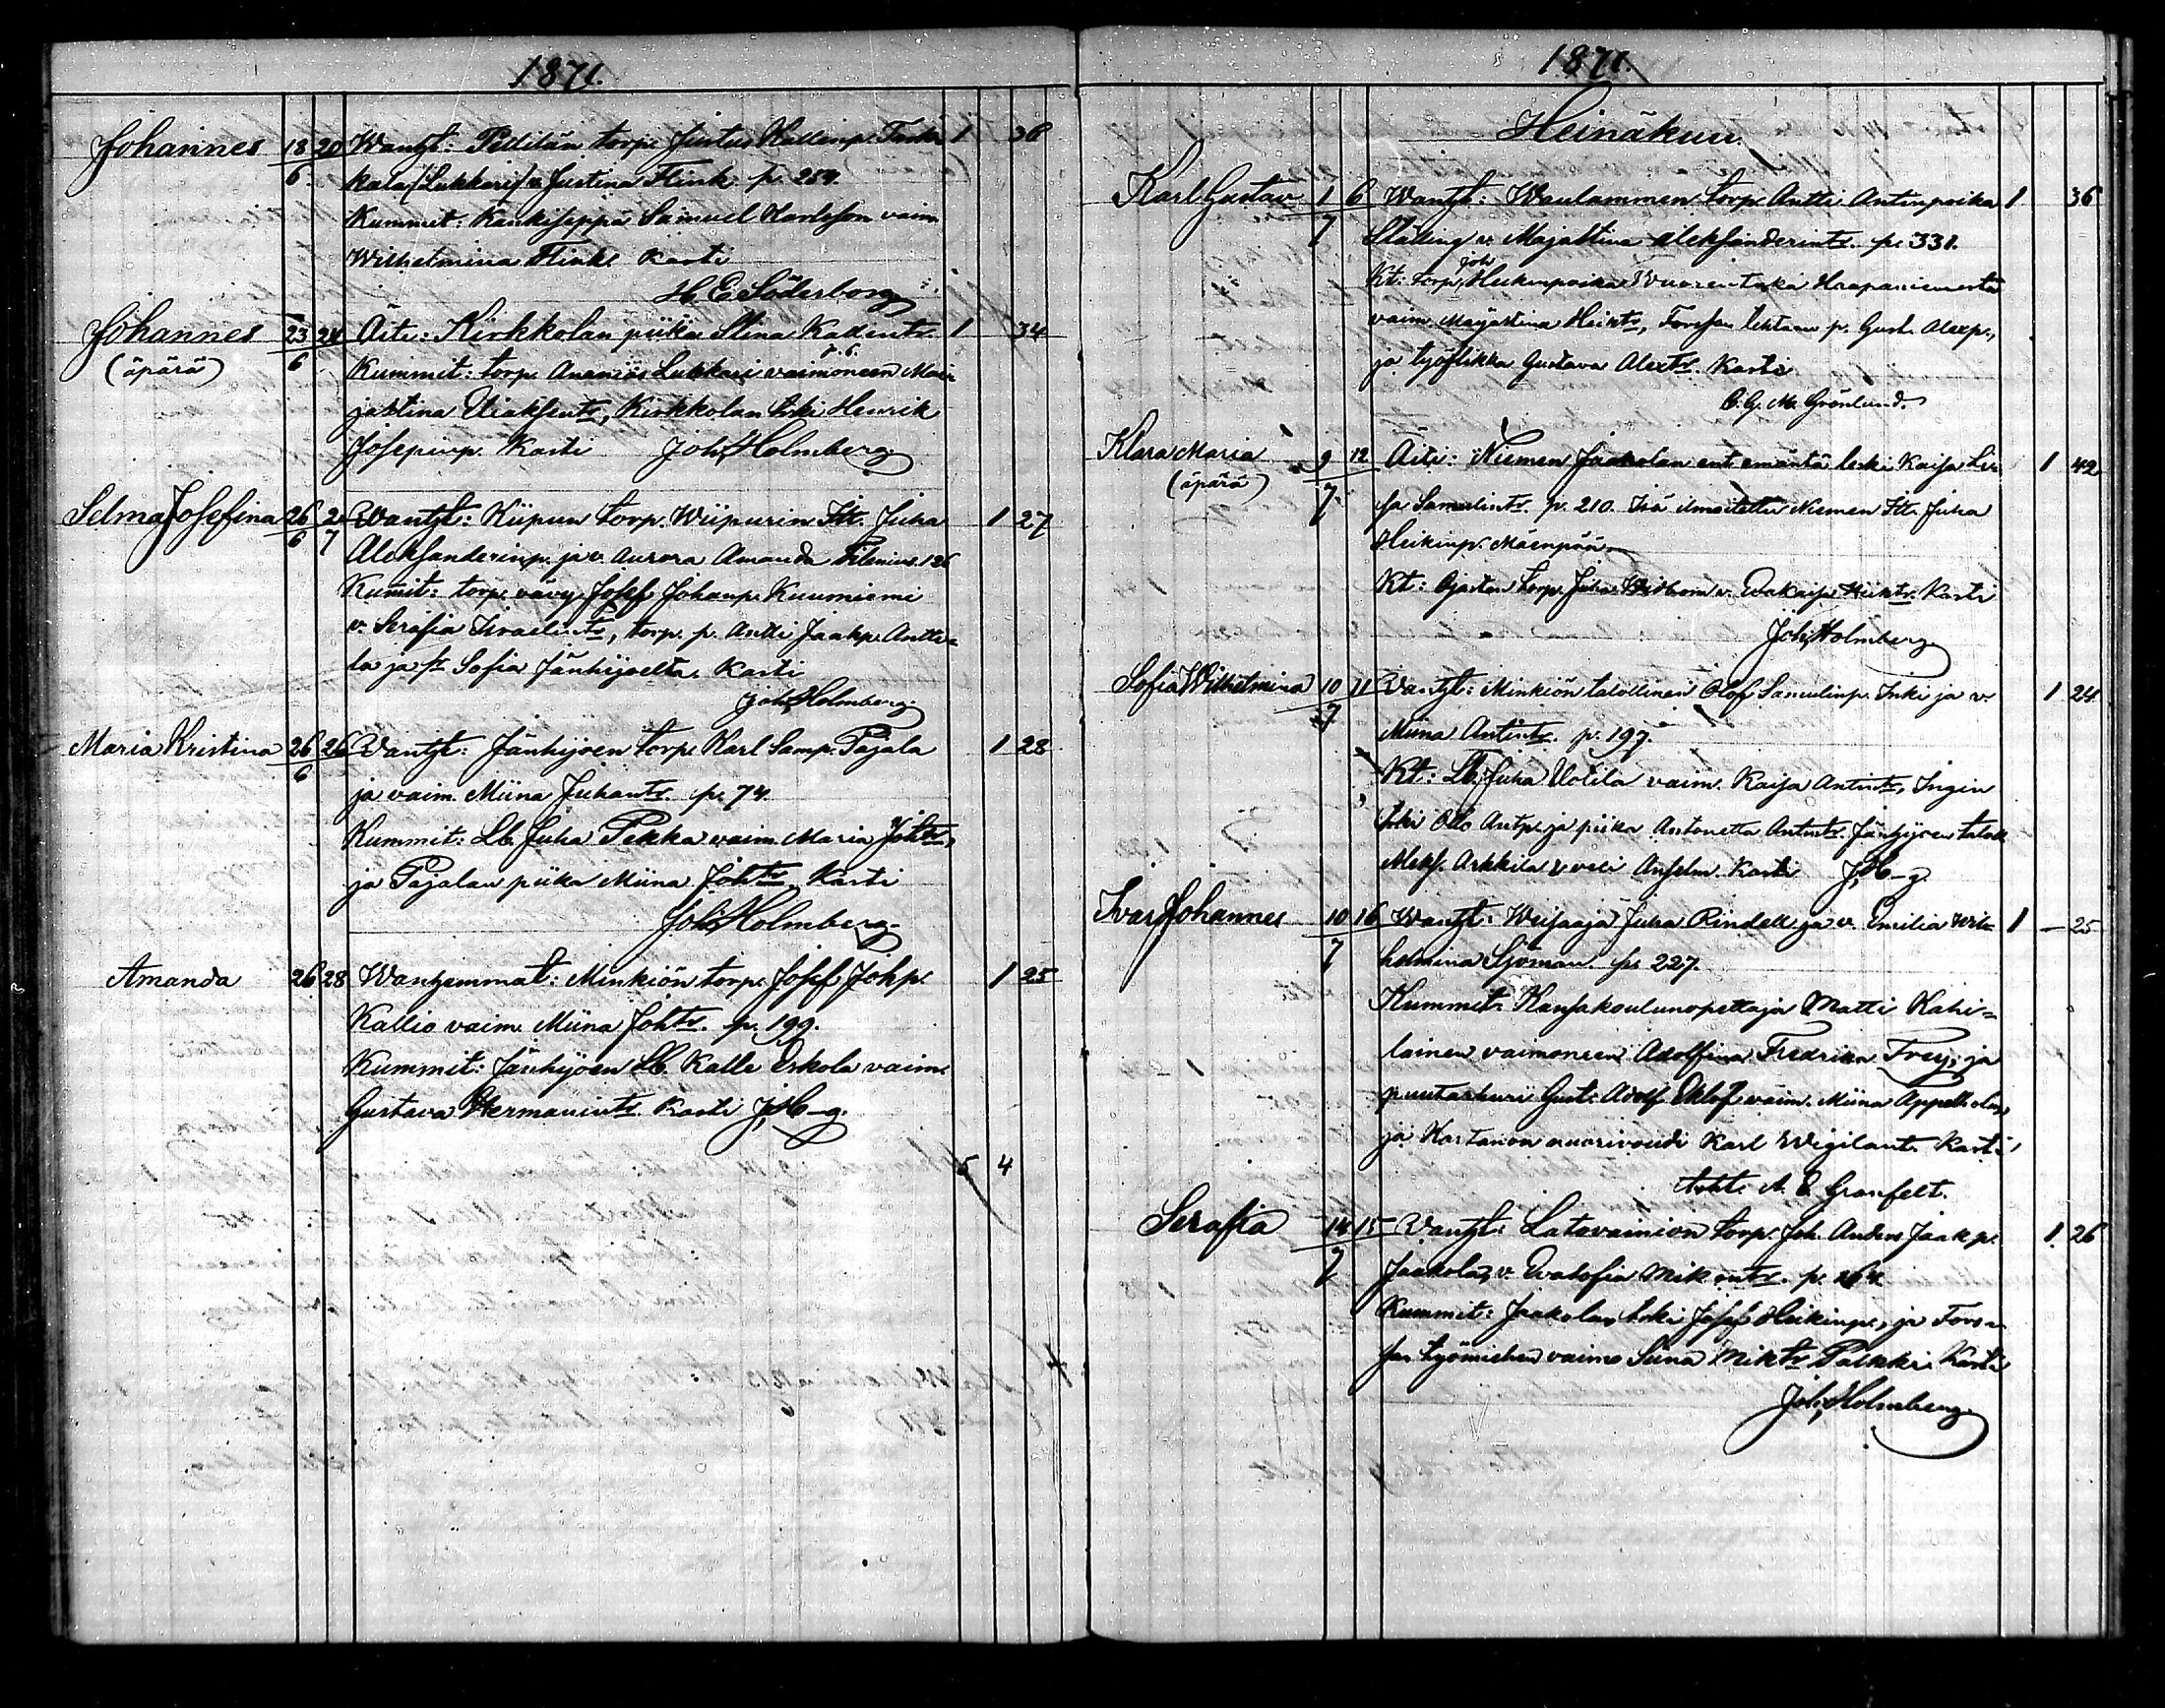 1871.
Johannes 18/6 20 Wanht: torp. Justus Kallenp. 1 36
kala (Lukkari) v. Justina Flink p. 254.
Kummit: Kankiseppä Samuel Karlsson vaim
Wilhelmina Flink Kasti
H. E. Söderborg
Johannes 23/6 24 Äiti: Kirkkolan piika Stina Kallentr. 1 34
(äpärä) Kummit: torp. Ananias Lukkari vaimoneen Mari
jastina, Kirkkolan Henrik
Josepinp. Kasti Joh. Holmberg
Selma Josefina 26/6 2/7 Wanht: Kiipun torp. Wiipurin Itr. Juha 1 27
Aleksanderinp. ja v. Aurora Amanda 126
Kummit: torp. vävy Josef Johanp. Kuuniemi
v. Serafia Israelintr, torp. p. Antti Jaakp. Antti=
la ja Sofia Jänhijoelta. Kasti
Joh. Holmberg.
Maria Kristina 26/6 26 Vanht: Jänhijoen torp. Karl Samp. Pajala 1 28
ja vaim. Miina Juhantr. p. 74
Kummit: Lb. Juha Pekka vaim. Maria Johtr,
ja Pajalan piika Miina Johtr Kasti
Joh. Holmberg
Amanda 26 28 Wanhemmat: Minkiön torp. Josef Johp. 1 25
Kallio vaim. Miina Johtr. p. 199.
Kummit: Jänhijoen Lb. Kalle Eskola vaim.
Gustava Hermanintr. Kasti J. H-g.
5 4
1871.
Heinäkuu.
Karl Gustav 1/7 6 Wanht: Waulammen torp. Antti Antinpoika 1 36
Ställing v. Majastina Aleksanderintr. p. 331.
Kt: torp. Joh Heikinpoika Wuorentaka Haapaniemestä
vaim. Majastina Heiktr, Forssan p. Gust. Alexp.,
ja työflikka Gustava Alextr. Kasti
C. G. M. Grönlund.
Klara Maria 9/7 12 Äiti: Niemen Jaakolan ent. emäntä leski Kaisa Lii 1 42
(äpärä) sa Samulintr. p. 210. Isä ilmoitettu Niemen Itr. Juha
Heikinp. Mäenpää
Kt: Ojastan torp. Juha v. Evakaisa Heiktr. Kasti
Joh. Holmberg
Sofia Wilhelmina 10/7 11 Vanht: Minkiön talollinen Olof Samulinp. Inki ja v. 1 24
Miina Antintr. p. 197.
Kt: Lb. Juha Uotila vaim. Kaisa Antintr, Ingin
Otto Antp. ja piika Antonetta Antintr. Jänhijoen talol
Aleks. Arkkila v. veli Anselm. Kasti J. H-g.
Ivar Johannes 10/7 16 Wanht: Weisaaja Juha Rindell ja v. Emilia Wil= 1 25
helmina Sjöman. p. 227.
Kummit: Kansakoulunopettaja Matti Kahi=
lainen vaimoneen Adolfina Fredrika Frey, ja
puutarhuri Gust. Adolf Eklöf vaim. Miina
ja Kartanon nuorivouti Karl Wigilant. Kasti
A. E. Granfelt.
Serafia 14/7 15 Vanht: Latovainion torp. Joh. Anders Jaakp. 1 26
Jaakola, v. Evasofia Mikontr. p. 164
Kummit: Jaakolan Josef Heikinp., ja Fors=
san työmiehen vaimo Miktr Palkki. Kasti
Joh. Holmberg